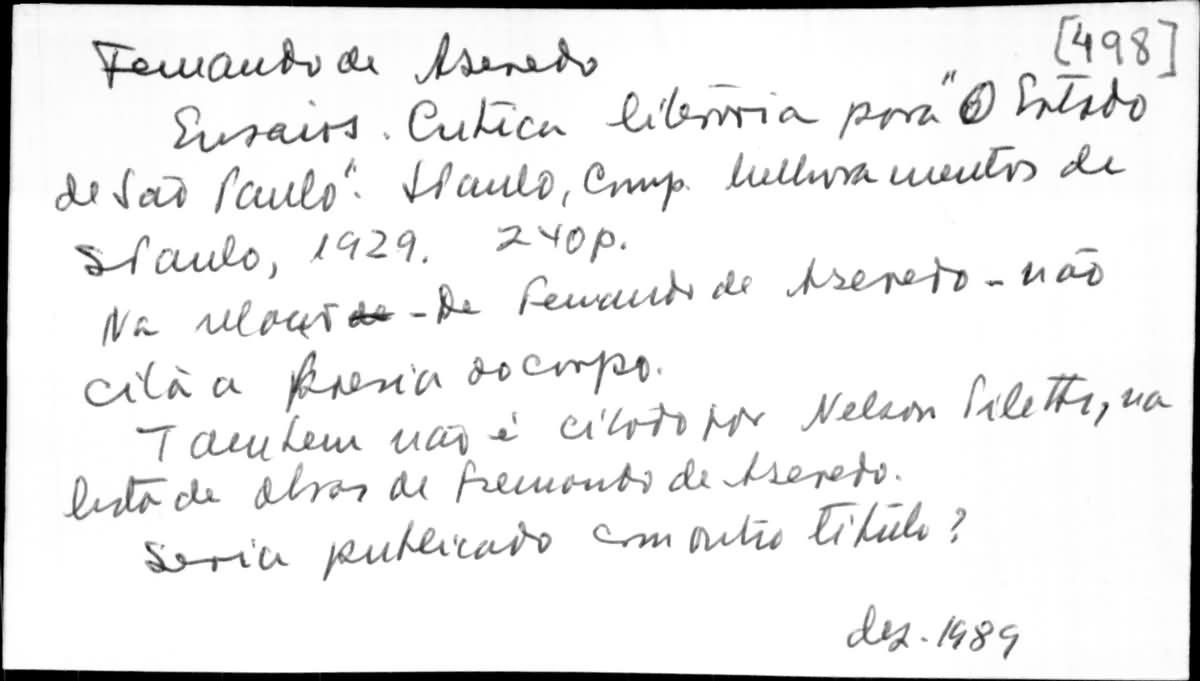 [498]
Fernando de Azevedo
Ensaios. Crítica literária para "O Estado
de São Paulo". S Paulo, Comp. Melhoramentos de
S Paulo, 1929. 240p.
Na relação - De Fernando de Azevedo - não
cita a Poesia do corpo.
Também não é citado por Nelson Piletti, na
lista de obras de Fernando de Azevedo.
Seria publicado com outro título?
dez. 1989